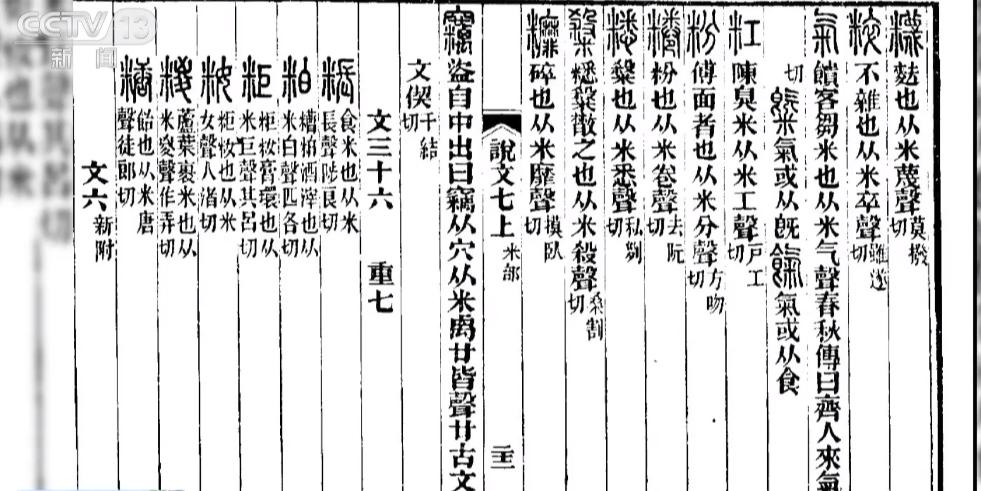 CCTV 13
新闻
麩也从米蔑聲莫撥切
粹不雜也从米卒聲雖遂切
氣饋客芻米也从米气聲春秋傳曰齊人來氣
切 氣或从既餼氣或从食
粠陳臭米从米工聲戶工切
粉傅面者也从米分聲方吻切
粉也从米卷聲去阮切
也从米悉聲私列切
散之也从米殺聲桑割切
碎也从米靡聲摸臥切
說文七上 米部
竊盜自中出曰竊从穴从米禼廿皆聲廿古文
文偰千結切
文三十六 重七
粻食米也从米長聲陟良切
粕糟粕酒滓也从米白聲匹各切
粔粔籹膏環也从米巨聲其呂切
籹粔籹也从米女聲人渚切
糉蘆葉裹米也从米㚇聲作弄切
糖飴也从米唐聲徒郎切
文六新附